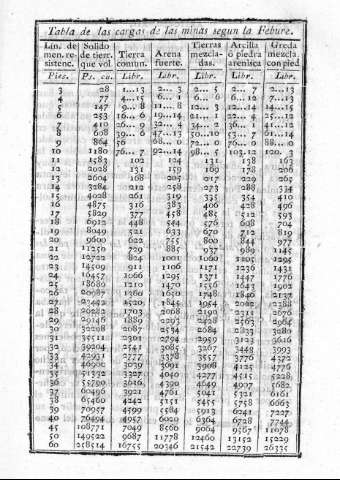 Tabla de las cargas de las minas segun la Febure.
Lin. de men. resistenc. Solido de tierr. que vol. Tierra comun. Arena fuerte. Tierras mezcladas. Arcilla ó piedra arenisca Greda mezcla. con pied
Pies. Ps. cu. Libr. Libr. Libr. Libr. Libr.
3 28 1...13 2... 3 2... 5 2... 7 2...13
4 77 4...15 6... 1 6... 6 6...12 7...13
5 147 9... 8 11... 8 12... 3 12...14 14...15
6 253 16... 6 19...14 21... 1 22... 4 25...12
7 410 26... 9 32... 4 34... 2 36... 1 41...12
8 608 39... 6 47...13 50...10 53... 7 61...14
9 864 56 68... 0 72... 0 76... 0 88... 0
10 1180 76... 7 92...14 98... 5 103.12 120... 3
11 1583 102 124 131 138 163
12 2028 131 159 169 178 206
13 2604 168 205 217 229 265
14 3284 212 258 273 288 334
15 4028 261 319 335 354 410
16 4875 316 383 406 428 496
17 5829 377 458 485 512 593
18 6912 448 544 576 608 704
19 8049 521 633 670 712 819
20 9600 622 755 800 844 977
21 11250 729 885 937 989 1145
22 12722 824 1001 1060 1205 1295
23 14509 911 1106 1171 1236 1431
24 16457 1066 1295 1371 1447 1776
25 18680 1210 1470 1556 1643 1902
26 20987 1360 1650 1748 1846 2137
27 23452 1520 1845 1954 2388
28 26282 1703 2068 2190 2311 2676
29 29146 1889 2293 2428 2563 2964
30 32208 2087 2534 2684 2833 3280
31 35511 2301 2794 2959 3123 3616
32 39204 2541 3085 3267 3449 3993
33 42931 2777 3378 3557 3776 4372
34 46900 3039 3691 3908 4125 4776
35 51332 3327 4040 4277 4515 5228
36 55790 3616 4390 4649 4907 5682
37 60496 3921 4761 5041 5321 6161
38 65460 4242 5151 5455 5758 6663
39 70957 4599 5584 5913 6241 7227
40 76494 4957 6020 6364 6728 7744
45 108771 7049 8560 9064 9567 11078
50 149522 9687 11778 12460 13152 15229
60 258514 16755 20346 21542 22739 26335